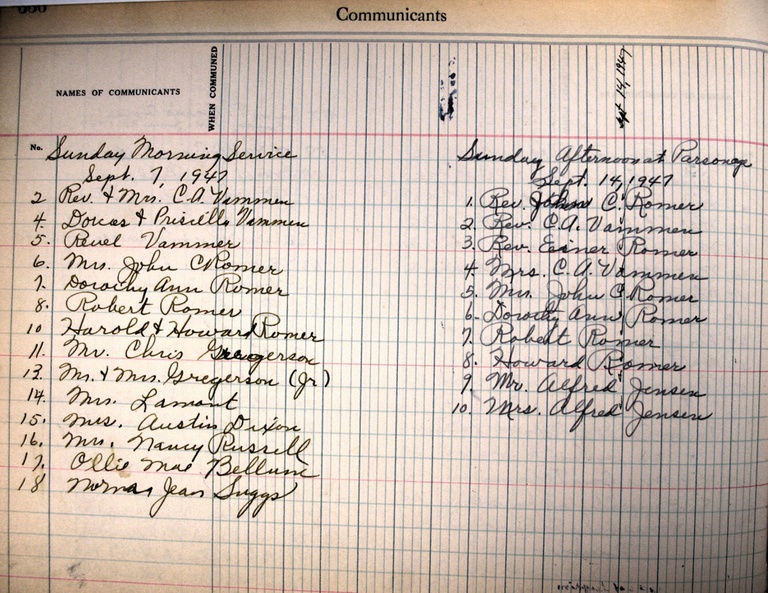 Communicants
NAMES OF COMMUNICANTS
WHEN COMMUNED
Sept 14, 1947
No.
Sunday Morning Service
Sept. 7, 1947
2 Rev. & Mrs. C.A. Vammen
4. Dorcas & Priscilla Vammen
5. Reuel Vammen
6. Mrs. John C Romer
7. Dorothy Ann Romer
8. Robert Romer
10 Harold & Howard Romer
11. Mr. Chris Gregerson
13. Mr. & Mrs. Gregerson (Jr)
14. Mrs. Lamont
15. Mrs. Austin Dixon
16. Mrs. Nancy Russell
17. Ollie Mae
18 Norma Jean Suggs
Sunday Afternoon at Parsonage
Sept. 14, 1947
1. Rev. John C. Romer
2. Rev. C.A. Vammen
3. Rev. Einer Romer
4. Mrs. C.A. Vammen
5. Mrs. John C Romer
6. Dorothy Ann Romer
7. Robert Romer
8. Howard Romer
9. Mr. Alfred Jensen
10. Mrs. Alfred Jensen